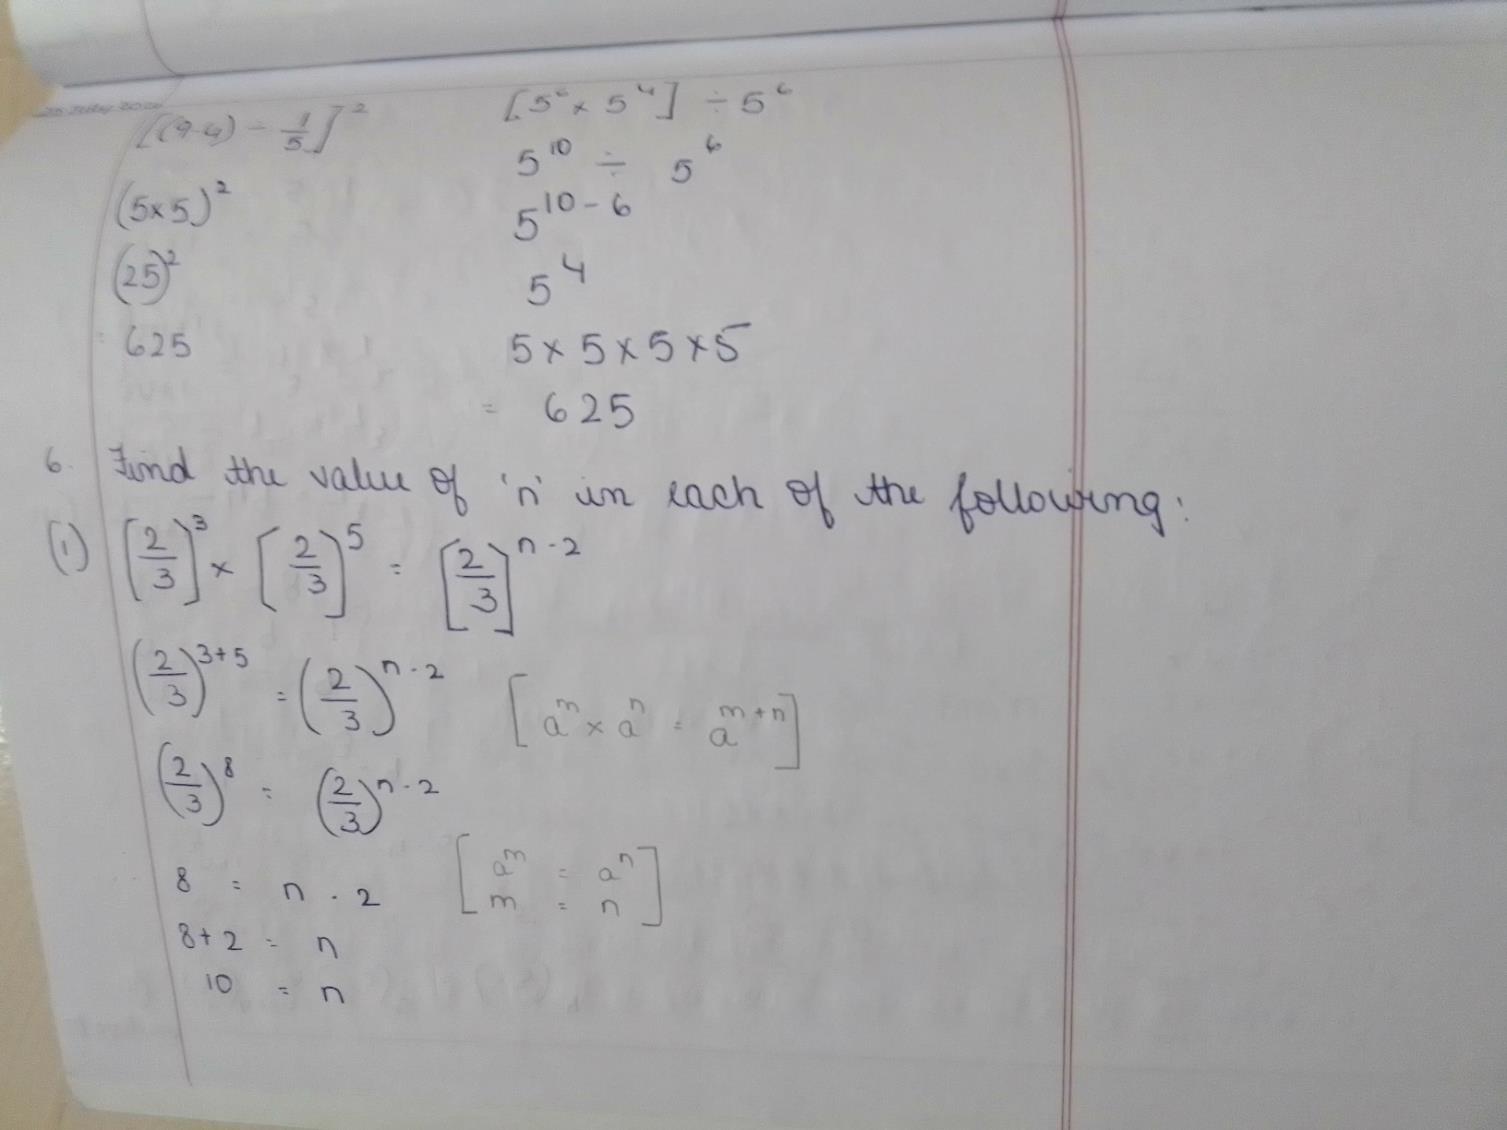 [(9-4) ÷ 1/5]²
(5×5)²
(25)²
= 625
[5⁶ × 5⁴] ÷ 5⁶
5¹⁰ ÷ 5⁶
5¹⁰⁻⁶
5⁴
5 × 5 × 5 × 5
= 625
6. Find the value of 'n' in each of the following:
(i) [2/3]³ × [2/3]⁵ = [2/3]ⁿ⁻²
(2/3)³⁺⁵ = (2/3)ⁿ⁻² [aᵐ × aⁿ = aᵐ⁺ⁿ]
(2/3)⁸ = (2/3)ⁿ⁻²
8 = n - 2 [aᵐ = aⁿ
m = n]
8+2 = n
10 = n